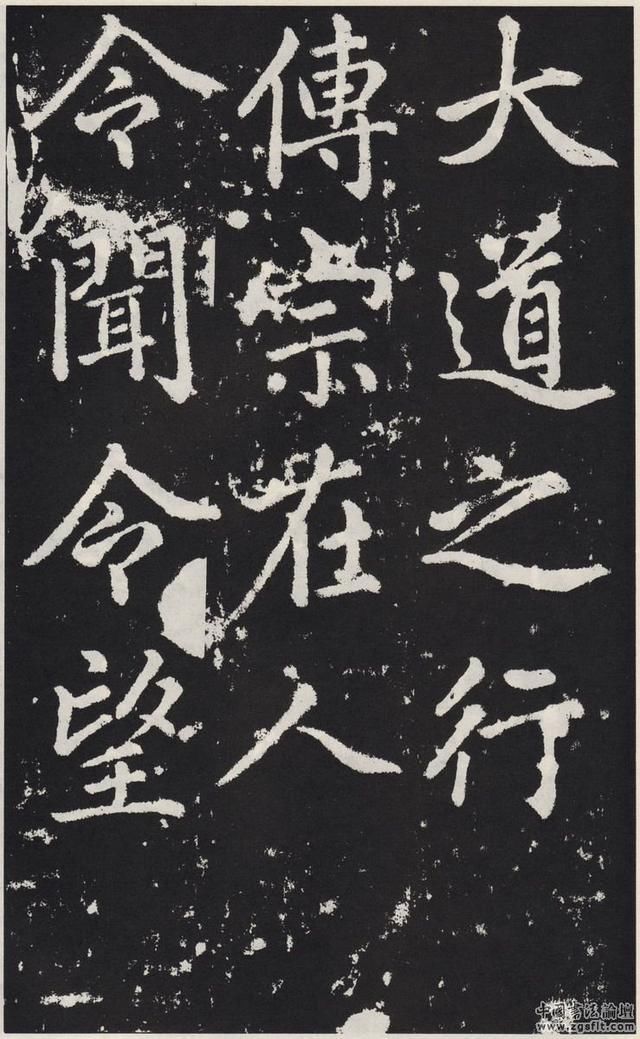 大道之行
傳宗在人
令聞令望
中国书法論壇
www.zgsflt.com